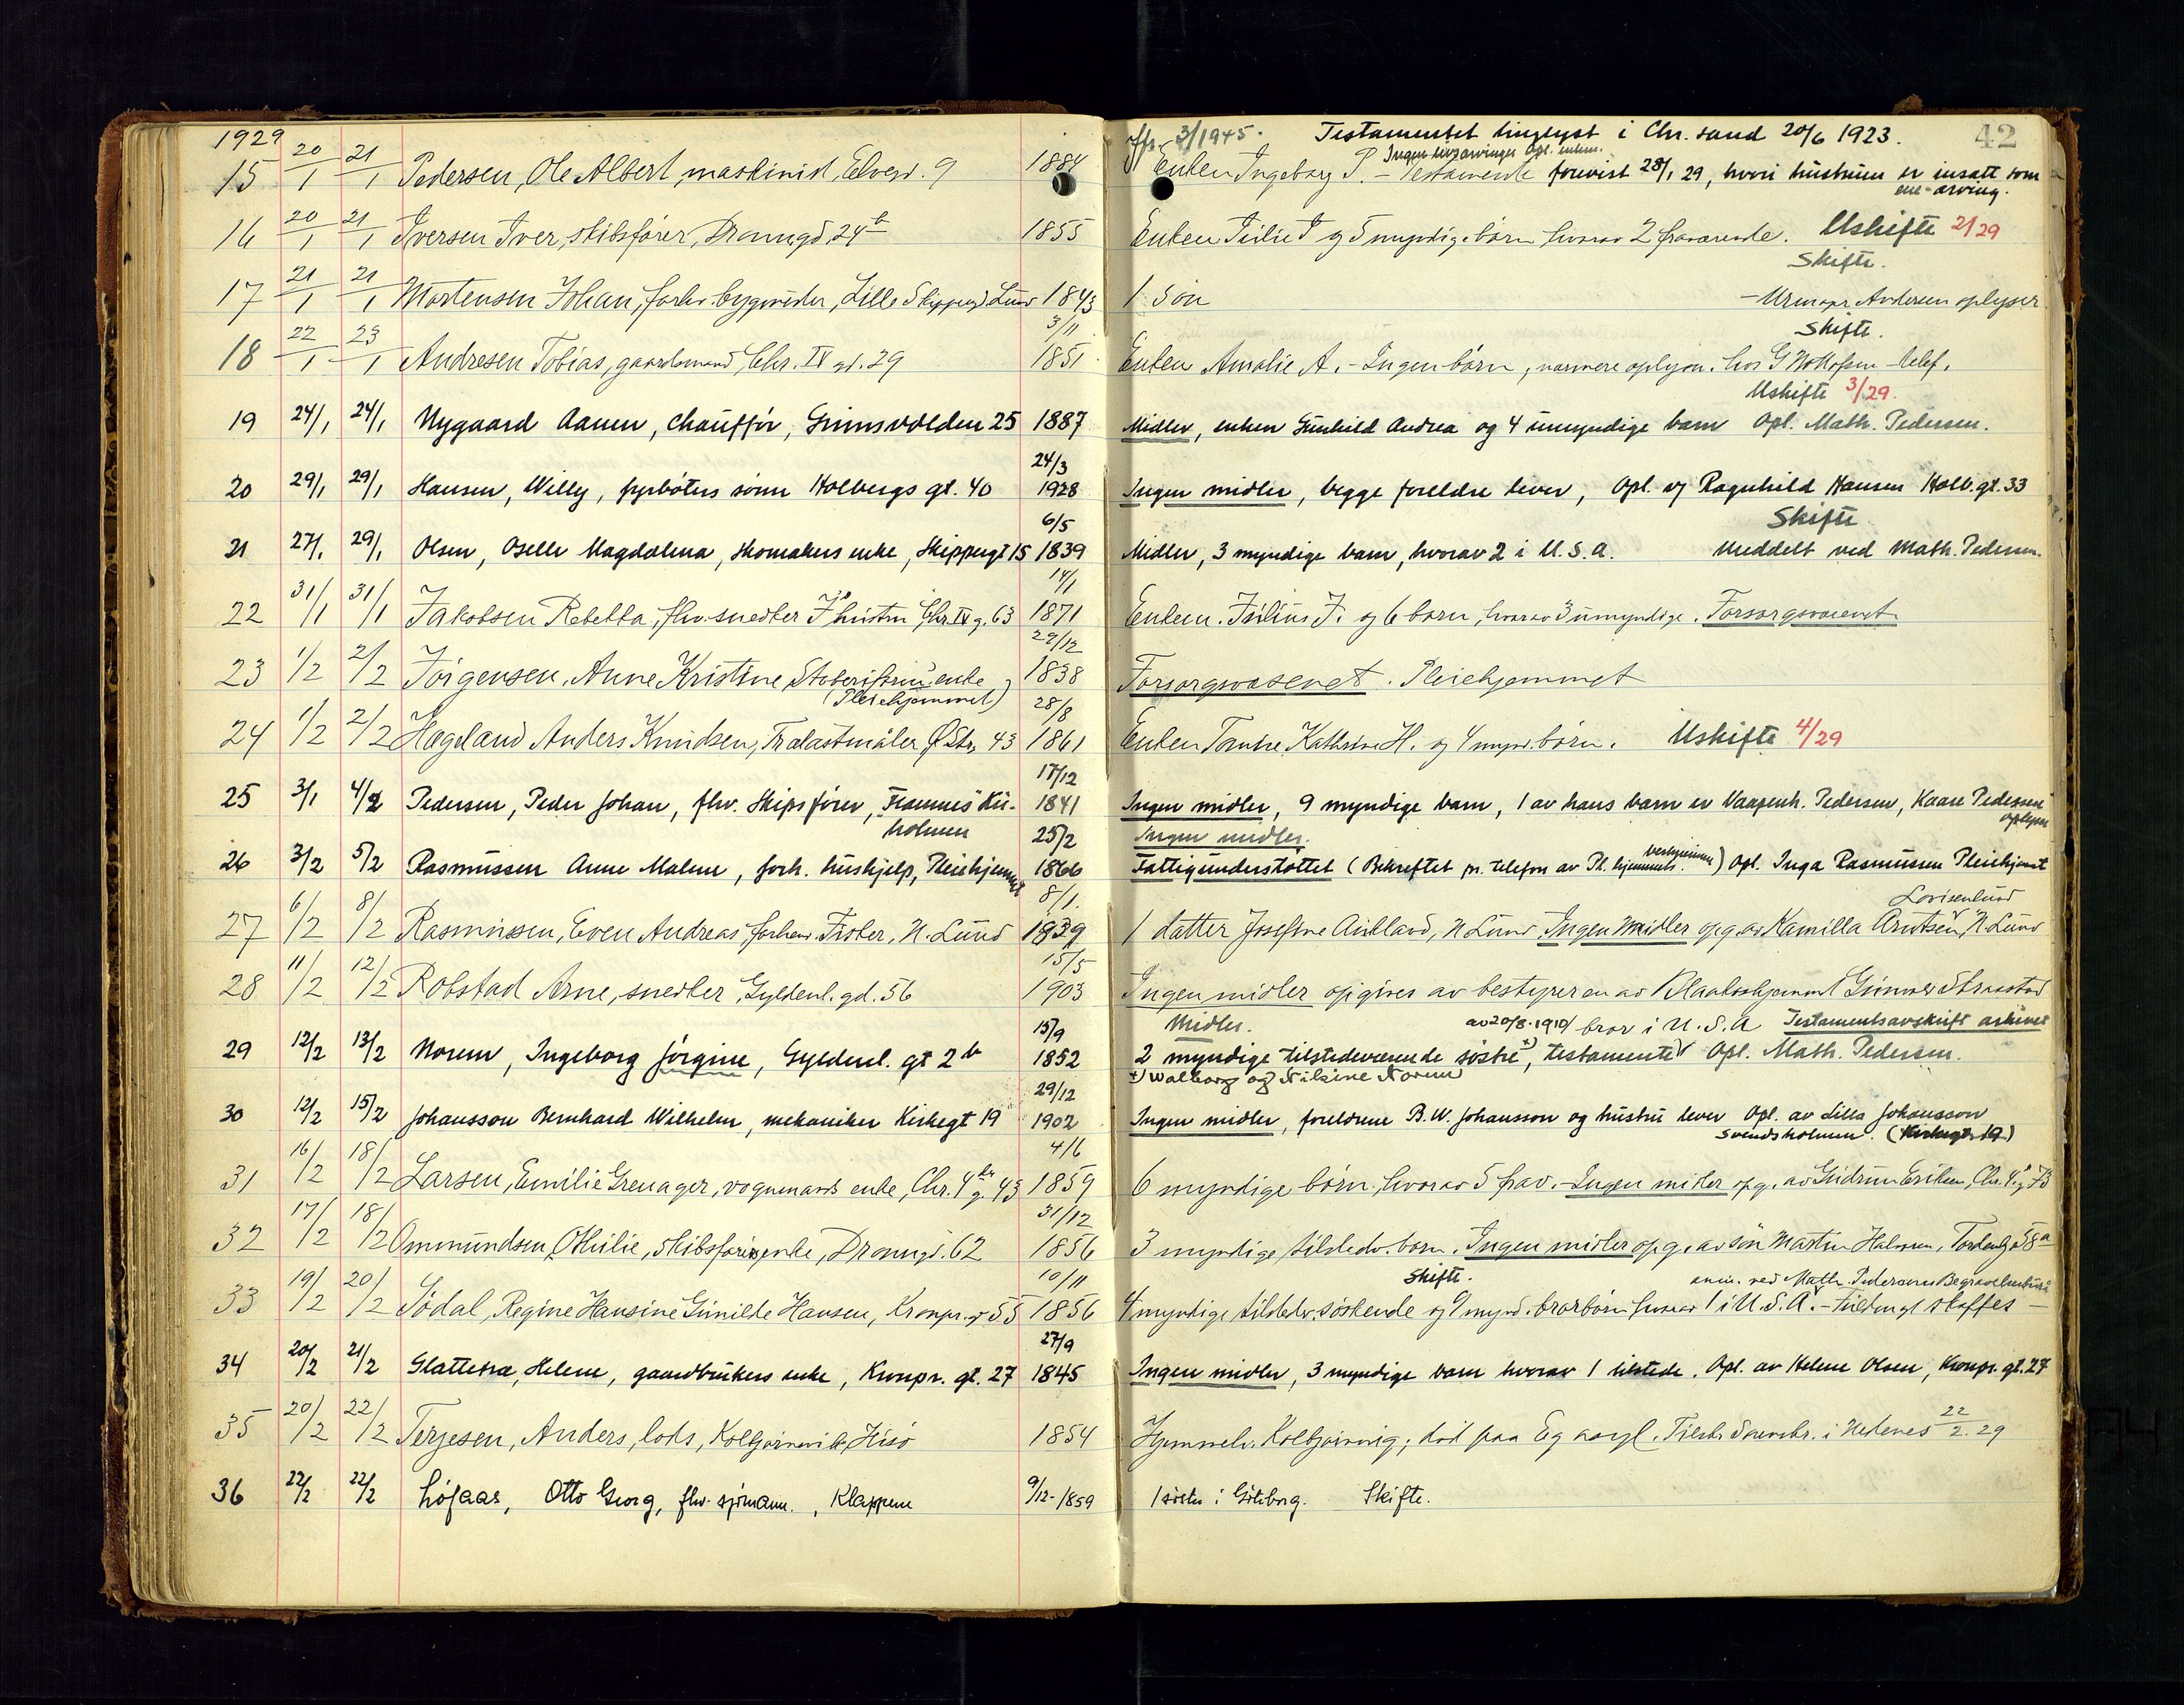 1929
15 20/1 21/1 Pedersen, Ole Albert, maskinist, Elvegd. 9 1884
16 20/1 21/1 Iversen Iver, skibsfører, Dronngd. 24b 1855
17 21/1 21/1 Mortensen Johan, forhv. bygmester, Lille Skippergd. Lund 1843
18 22/1 23/1 Andresen Tobias, gaardsmand, Chr. IV gd. 29 3/11 1851
19 24/1 24/1 Nygaard Aanen, chauffør, Grimsvolden 25 1887
20 29/1 29/1 Hansen, Willy, fyrbøters sønn Holbergs gt. 40 24/3 1928
21 27/1 29/1 Olsen, Oselle Magdalena, skomakers enke, Skippergt 15 6/5 1839
22 31/1 31/1 Jakobsen Rebekka, fhv. snedker J's hustru Chr IV g. 63 14/1 1871
23 1/2 2/2 Jörgensen, Anne Kristine, enke 29/12 1838
(Pleiehjemmet)
24 1/2 2/2 Hageland Anders Knudsen, Tralastmåler Ø Str. 43 28/8 1861
25 3/1 4/2 Pedersen, Peder Johan, fhv. Skipsfører, Frammes Ku- 17/12 1841
holmen
26 3/2 5/2 Rasmussen Anne Malene, forh. hushjelp, Pleiehjemmet 25/2 1866
27 6/2 8/2 Rasmussen, Even Andreas, forhenv. Fisker, N. Lund 8/1 1839
28 11/2 12/2 Robstad Arne, snedker, Gyldenl. gd. 56 15/5 1903
29 12/2 13/2 Norem, Ingeborg Jørgine, Gyldenl. gt 2 b 15/9 1852
30 12/2 15/2 Johansson Bernhard Wilhelm, mekaniker Kirkegt 19 29/12 1902
31 16/2 18/2 Larsen, Emilie Grenager, vognmands enke, Chr. 4des g. 43 4/6 1859
32 17/2 18/2 Ommundsen, Othilie, skibsførerenke, Dronngd. 62 31/12 1856
33 19/2 20/2 Södal, Regine Hansine Gunilde Hansen, Kronpr. g 55 10/11 1856
34 20/2 21/2 Slattetræ, Helene, gaardbrukers enke, Kronpr. gt. 27 27/9 1845
35 20/2 22/2 Terjesen, Anders, lods, Kolbjørnsvik, Hisö 1854
36 22/2 22/2 Løfaas, Otto Georg, fhv. sjømann., Klappene 9/12-1859
Jfr. 3/1945. Testamentet tinglyst i Chr. sand 20/6 1923. 42
Ingen livsarvinger Opl. enken.
Enken Ingeborg P. – Testamente forevist 28/1 29, hvori hustruen er insatt som
ene-arving.
Enken Julie I og 5 myndige børn hvorav 2 fraværende. Uskifte 2/29
Skifte.
1 Søn – Urmagr. Andersen oplyser
Skifte.
Enken Amalie A. – Ingen børn, nærmere oplysn. hos telef.
Uskifte 3/29.
Midler, enken Gunhild Andrea og 4 umyndige barn Opl. Math. Pedersen.
Ingen midler, begge foreldre lever, Opl. af Ragnhild Hansen Holb. gt. 33
Skifte
Midler, 3 myndige barn, hvorav 2 i U.S.A. Meddelt ved Math. Pedersen.
Enkem. Julius J. og 6 børn, hvorav 3 umyndige. Forsorgsvæsenet
Forsorgsvæsenet. Pleiehjemmet
Enken Kathrine H. og 4 mynd. børn. Uskifte 4/29
Ingen midler, 9 myndige barn, 1 av hans barn er Vaapenh. Pedersen, Kaare Pedersen
oplyser
Ingen midler.
Fattigunderstøttet (Bekreftet pr. telefon av Pl. hjemmets bestyrerinne) Opl. Inga Rasmussen Pleiehjemt
Lovisenlund
1 datter Josefine Aukland, N Lund. Ingen midler opg. av Kamilla Arntsen, N. Lund
Ingen midler opgives av bestyreren av Blaakorshjemmet Gunnar
Midler. av 20/8-1910 bror i U.S.A Testamentsavskrift arkivet
2 myndige tilstedeværende søstre +), testamente Opl. Math. Pedersen.
+) Walborg og Nilsine Norem
Ingen midler, foreldrene B.W. Johansson og hustru lever Opl. av Lilla Johansson
Svendsholmen. (Kirkegt 19)
6 myndige børn, hvorav 5 frav. – Ingen midler opg. av Gudrun Eriksen, Chr. 4 g 73
3 myndige tilstedev. børn. Ingen midler opg. av søn Martin Halvorsen, Tordenskj. 58a
Skifte. anm. ved Math. Pedersens Begravelsesbyrå
4 myndige tilstedev. søskende og 9 mynd. brorbørn hvorav 1 i U.S.A. – skaffes –
Ingen midler, 3 myndige barn hvorav 1 tilstede. Opl. av Helene Olsen, Kronpr. gt. 27
Hjemmeh. Kolbjørnsvig; død paa Eg asyl. Tilst. Sorenskr. i Nedenes 22/2.29
1 søster i Gøteborg. Skifte.